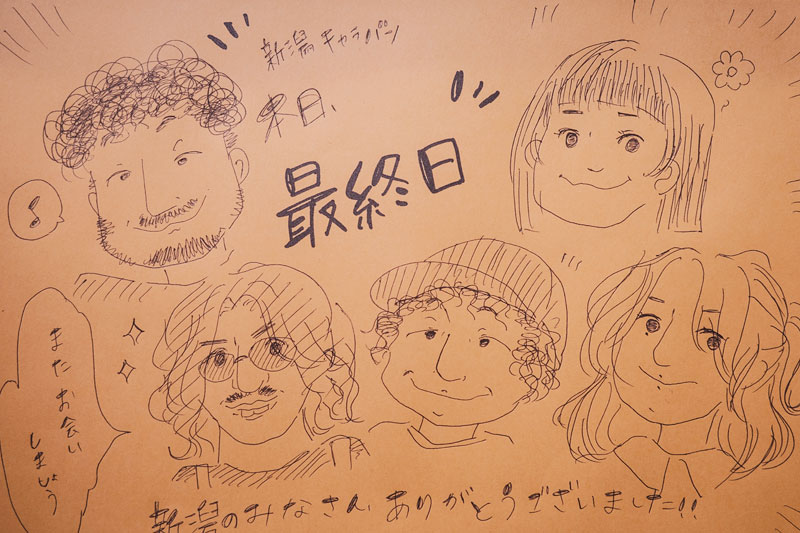 新潟キャラバン
本日、
最終日
またお会い
しましょう
新潟のみなさん、ありがとうございました!!